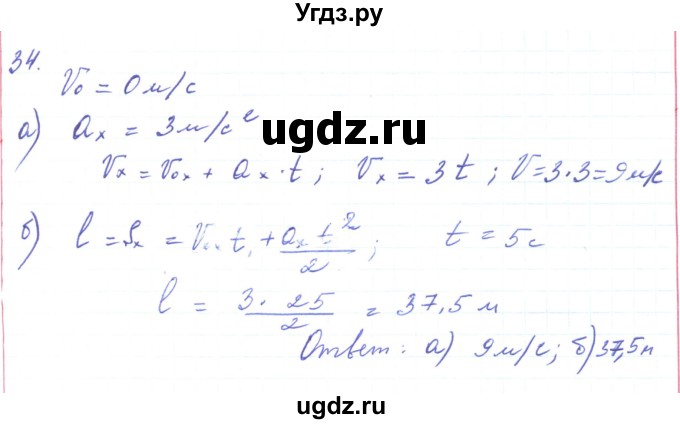 Угдз.ру
34.
V₀ = 0 м/с
а) aₓ = 3 м/с²
ugdz.ru
Vₓ = V₀ₓ + aₓ · t ; Vₓ = 3t ; V = 3·3 = 9 м/с
б) l = Sₓ = V₀ₓ t + aₓ t²/2 ; t = 5 с
l = 3 · 25/2 = 37,5 м
Ответ: а) 9 м/с; б) 37,5 м
ugdz.ru